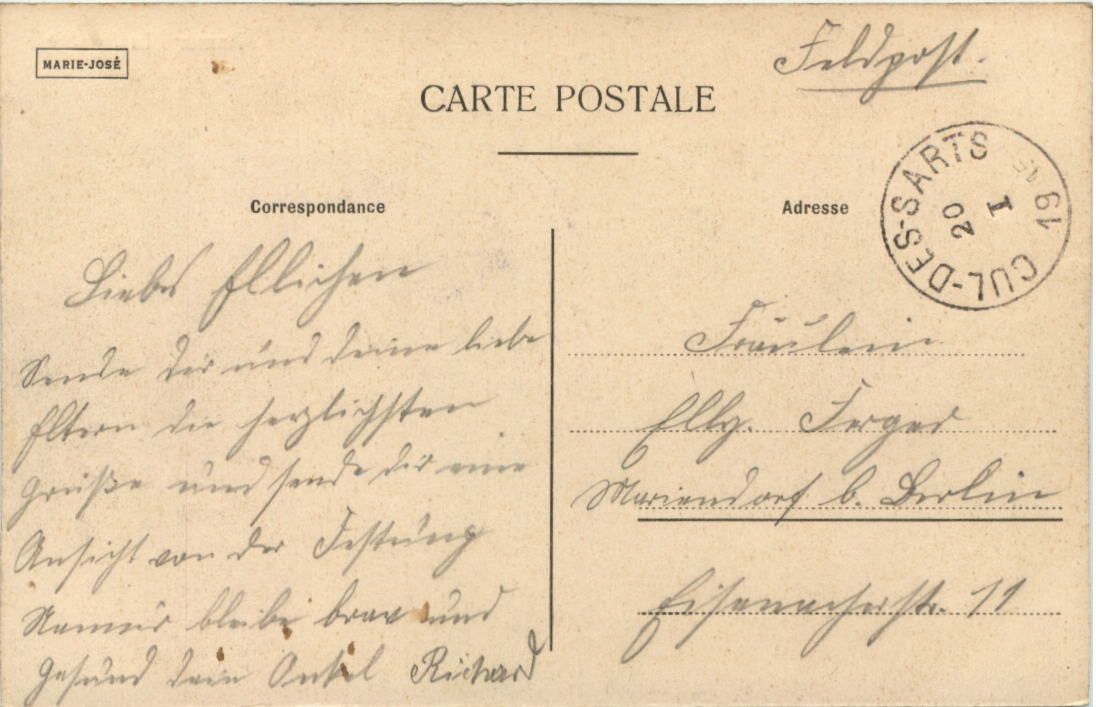 MARIE-JOSÉ
Feldpost.
CARTE POSTALE
CUL-DES-SARTS
20
I
19 15
Correspondance
Adresse
Liebes Ellichen
Sende dir und deine liebe
Eltern die herzlichsten
Grüße und sende dir eine
Ansicht von der Festung
Namur bleibe brav und
gesund dein Onkel Richard
Fräulein
Elly.
Mariendorf b. Berlin
Eisenacherstr. 11